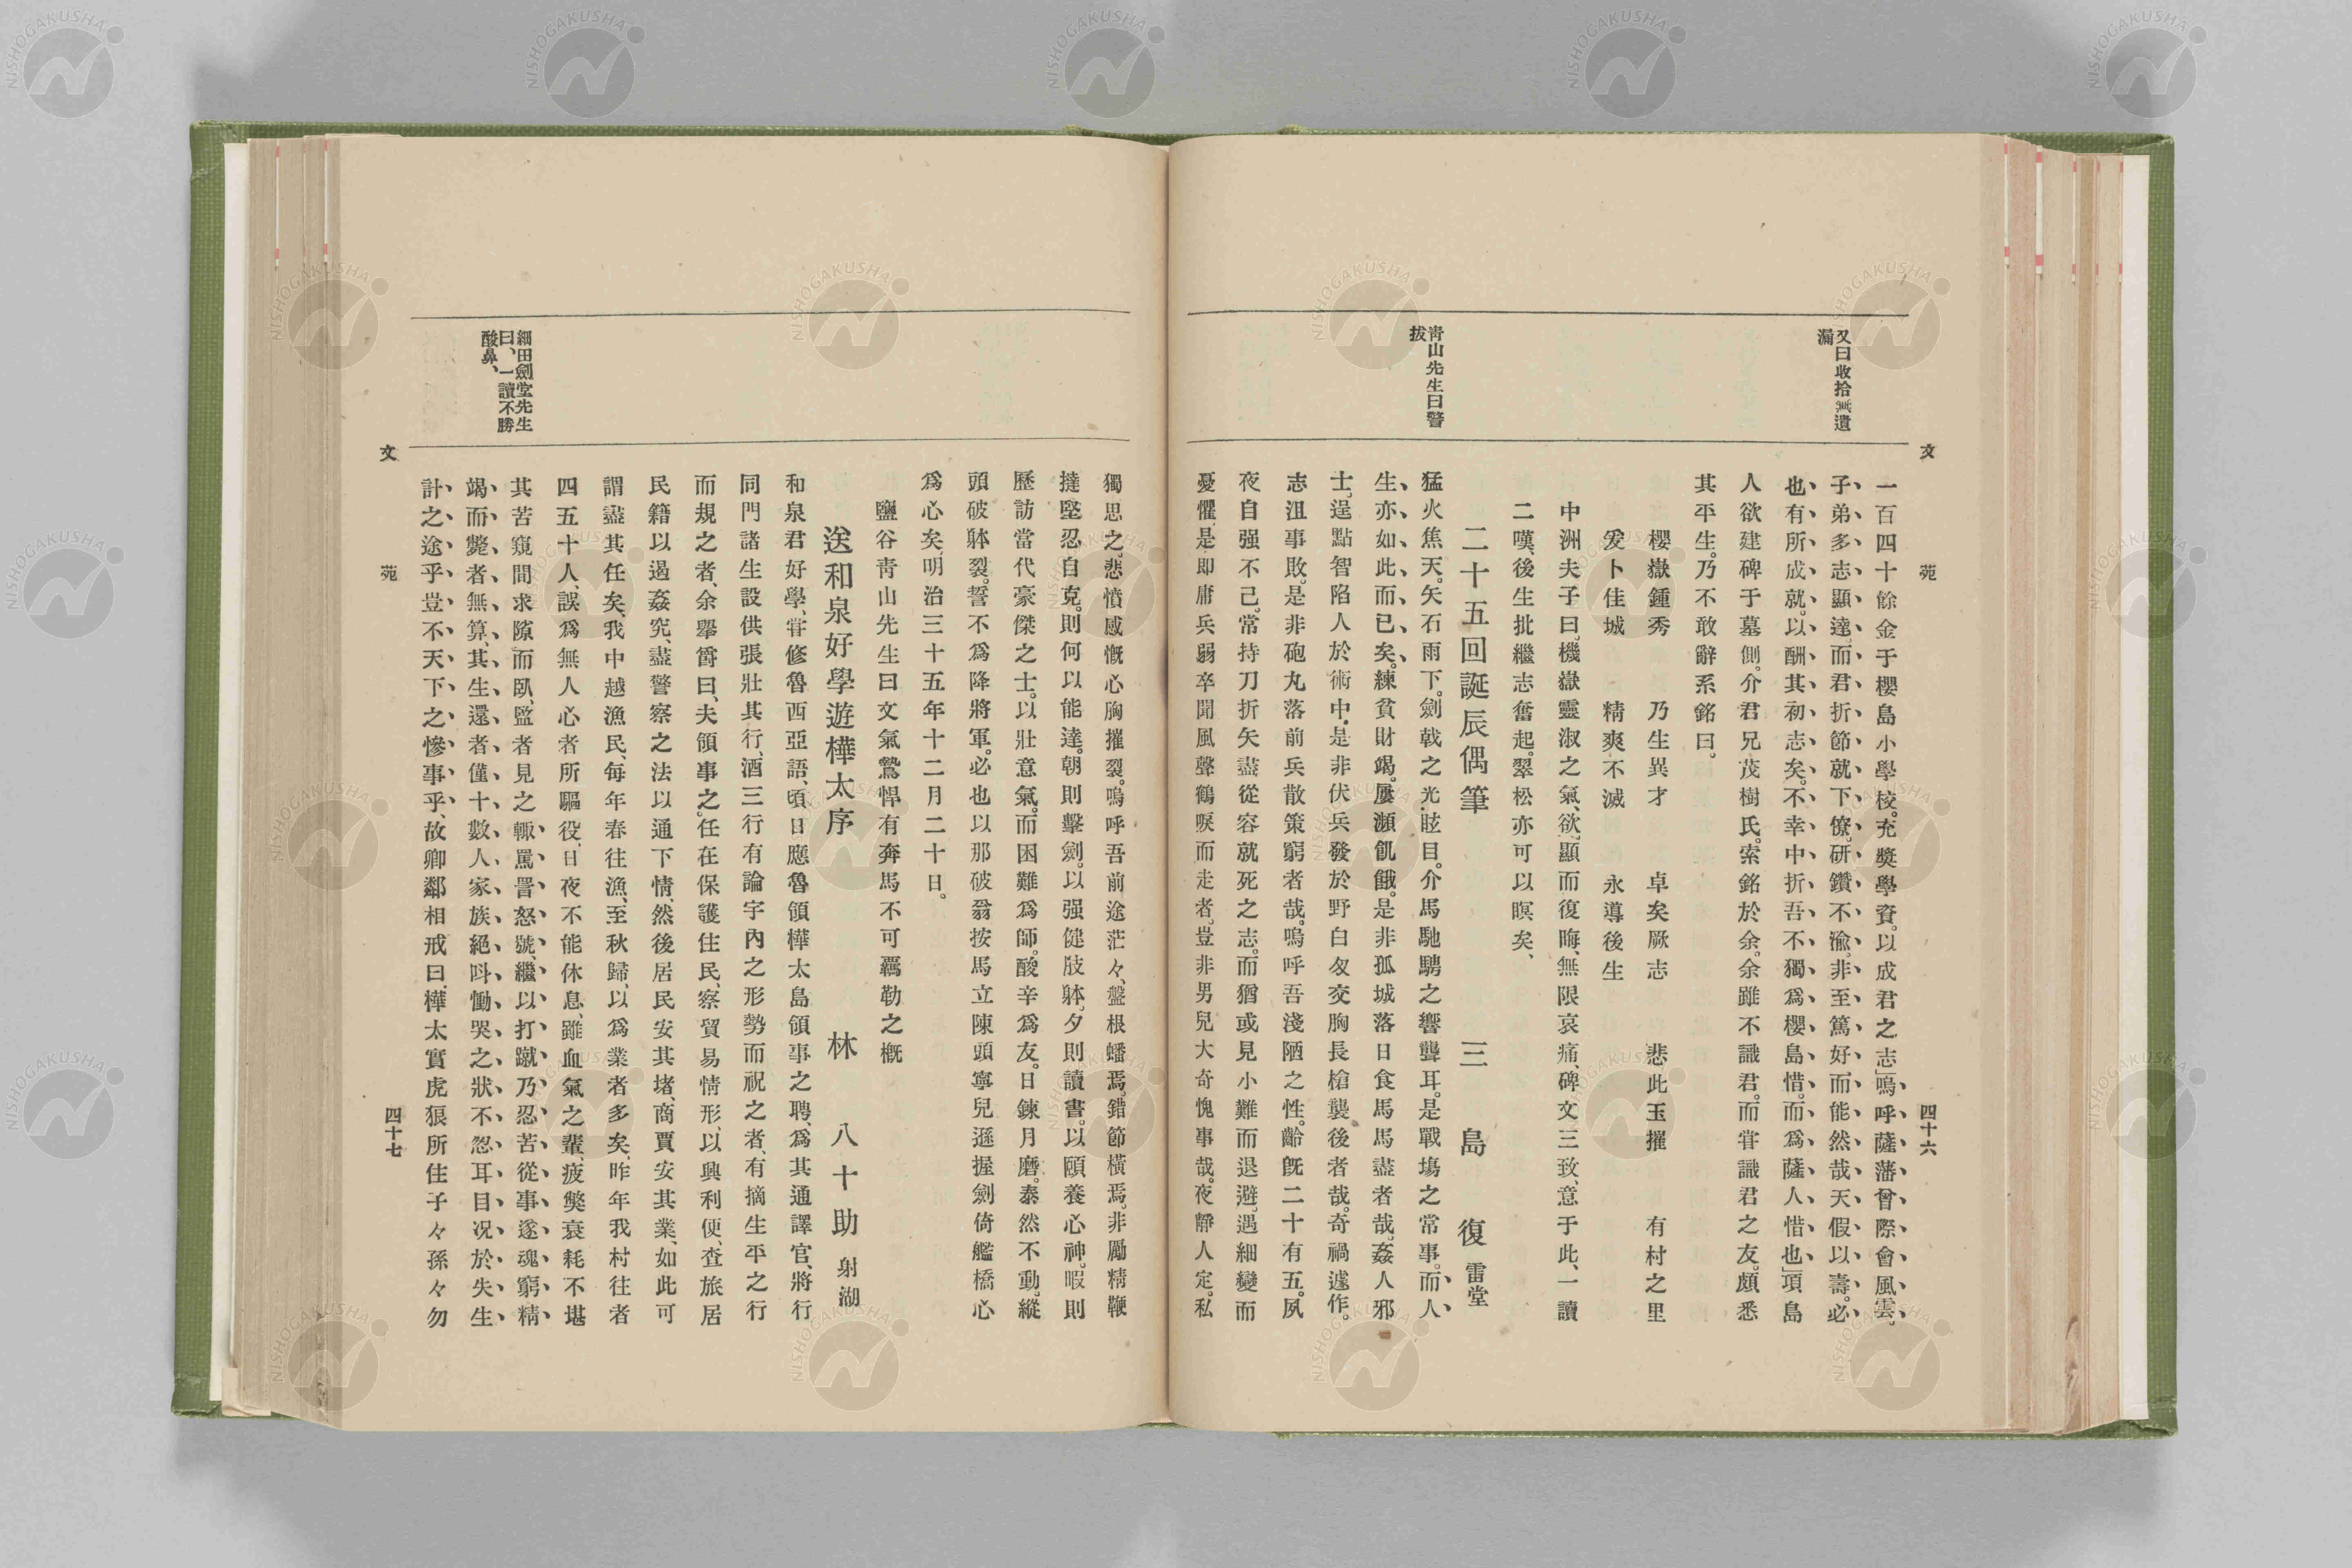 文　苑　四十六
又曰收拾無遺
漏
一百四十餘金于櫻島小學校。充奬學資。以成君之志」嗚呼薩藩曾際會風雲。
子弟多志顯達。而君折節就下僚。研鑽不渝。非至篤好而能然哉天假以壽。必
也有所成就。以酬其初志矣。不幸中折吾不獨爲櫻島惜。而爲薩人惜也」項島
人欲建碑于墓側。介君兄茂樹氏。索銘於余。余雖不識君。而甞識君之友。頗悉
其平生。乃不敢辭系銘曰。
櫻嶽鍾秀　乃生異才　卓矣厥志　悲此玉摧　有村之里
爰卜佳城　精爽不滅　永導後生
中洲夫子曰。機嶽靈淑之氣、欲顯而復晦、無限哀痛、碑文三致意于此、一讀
二嘆、後生批繼志奮起。翠松亦可以瞑矣、
二十五回誕辰偶筆　三島復　雷堂
靑山先生曰警
拔
猛火焦天。矢石雨下。劍戟之光眩目。介馬馳騁之響聾耳。是戰塲之常事。而人
生亦如此而已矣。練貧財竭。屢瀕飢餓。是非孤城落日食馬馬盡者哉。姦人邪
士。逞黠智陷人於術中。是非伏兵發於野白刄交胸長槍襲後者哉。奇禍遽作。
志沮事敗。是非砲丸落前兵散策窮者哉。嗚呼吾淺陋之性。齡旣二十有五。夙
夜自强不已。常持刀折矢盡從容就死之志。而猶或見小難而退避。遇細變而
憂懼。是卽庸兵弱卒聞風聲鶴唳而走者。豈非男兒大奇愧事哉。夜靜人定。私
獨思之。悲憤感慨心胸摧裂。嗚呼吾前途茫々、盤根蟠焉。錯節橫焉。非勵精鞭
撻堅忍自克。則何以能達。朝則擊劍。以强健肢躰。夕則讀書。以頤養心神。暇則
歷訪當代豪傑之士。以壯意氣。而困難爲師。酸辛爲友。日鍊月磨。泰然不動。縱
頭破躰裂。誓不爲降將軍。必也以那破翁按馬立陳頭寧兒遜握劍倚艦橋心
爲心矣、明治三十五年十二月二十日。
鹽谷靑山先生曰文氣鷙悍有奔馬不可羈勒之槪
送和泉好學遊樺太序　林　八十助　射湖
和泉君好學、甞修魯西亞語、頃日應魯領樺太島領事之聘、爲其通譯官、將行
同門諸生設供張壯其行、酒三行有論宇內之形勢而祝之者、有摘生平之行
而規之者、余擧爵曰、夫領事之。任在保護住民、察貿易情形、以興利便、査旅居
民籍以遏姦宄、盡警察之法以通下情、然後居民安其堵、商賈安其業、如此可
謂盡其任矣、我中越漁民、每年春往漁、至秋歸、以爲業者多矣、昨年我村往者
四五十人、誤爲無人心者所驅役、日夜不能休息、雖血氣之輩、疲獘衰耗不堪
細田劍堂先生
曰、一讀不勝
酸鼻、
其苦窺間求隙而臥、監者見之輙罵詈怒號、繼以打蹴乃忍苦從事、遂魂窮精
竭而斃者無算、其生還者僅十數人、家族絕叫慟哭之狀不忍耳目、况於失生
計之途乎、豈不天下之慘事乎、故卿鄰相戒曰、樺太實虎狼所住子々孫々勿
文　苑　四十七